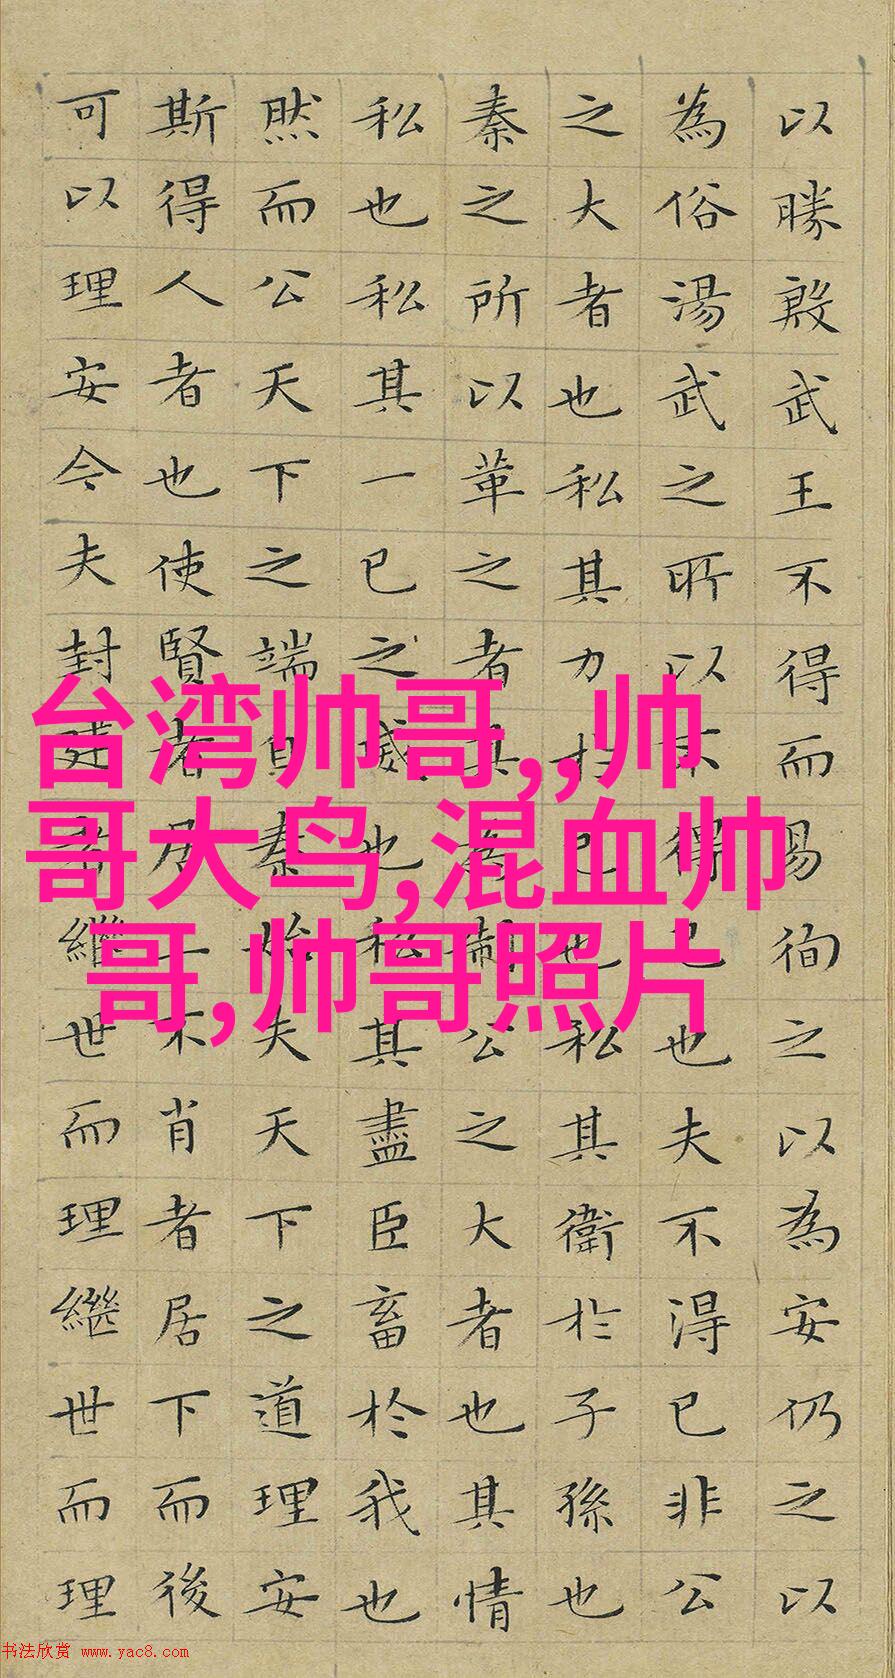 以勝殷武王不得而易徇之以為安仍之以
為俗湯武之所以不得已也夫不得已非公
之大者也私其力於己也私其衛於子孫也
秦之所以革之者其為制公之大者也其情
私也私其一己之威也私其盡臣畜於我也
然而公天下之端自秦始夫天下之道理安
斯得人者也使賢者居上不肖者居下而後
可以理安今夫封建者繼世而理繼世而理
台湾帅哥,,帅
哥大鸟,混血帅
哥,帅哥照片
书法欣赏 www.yac8.com